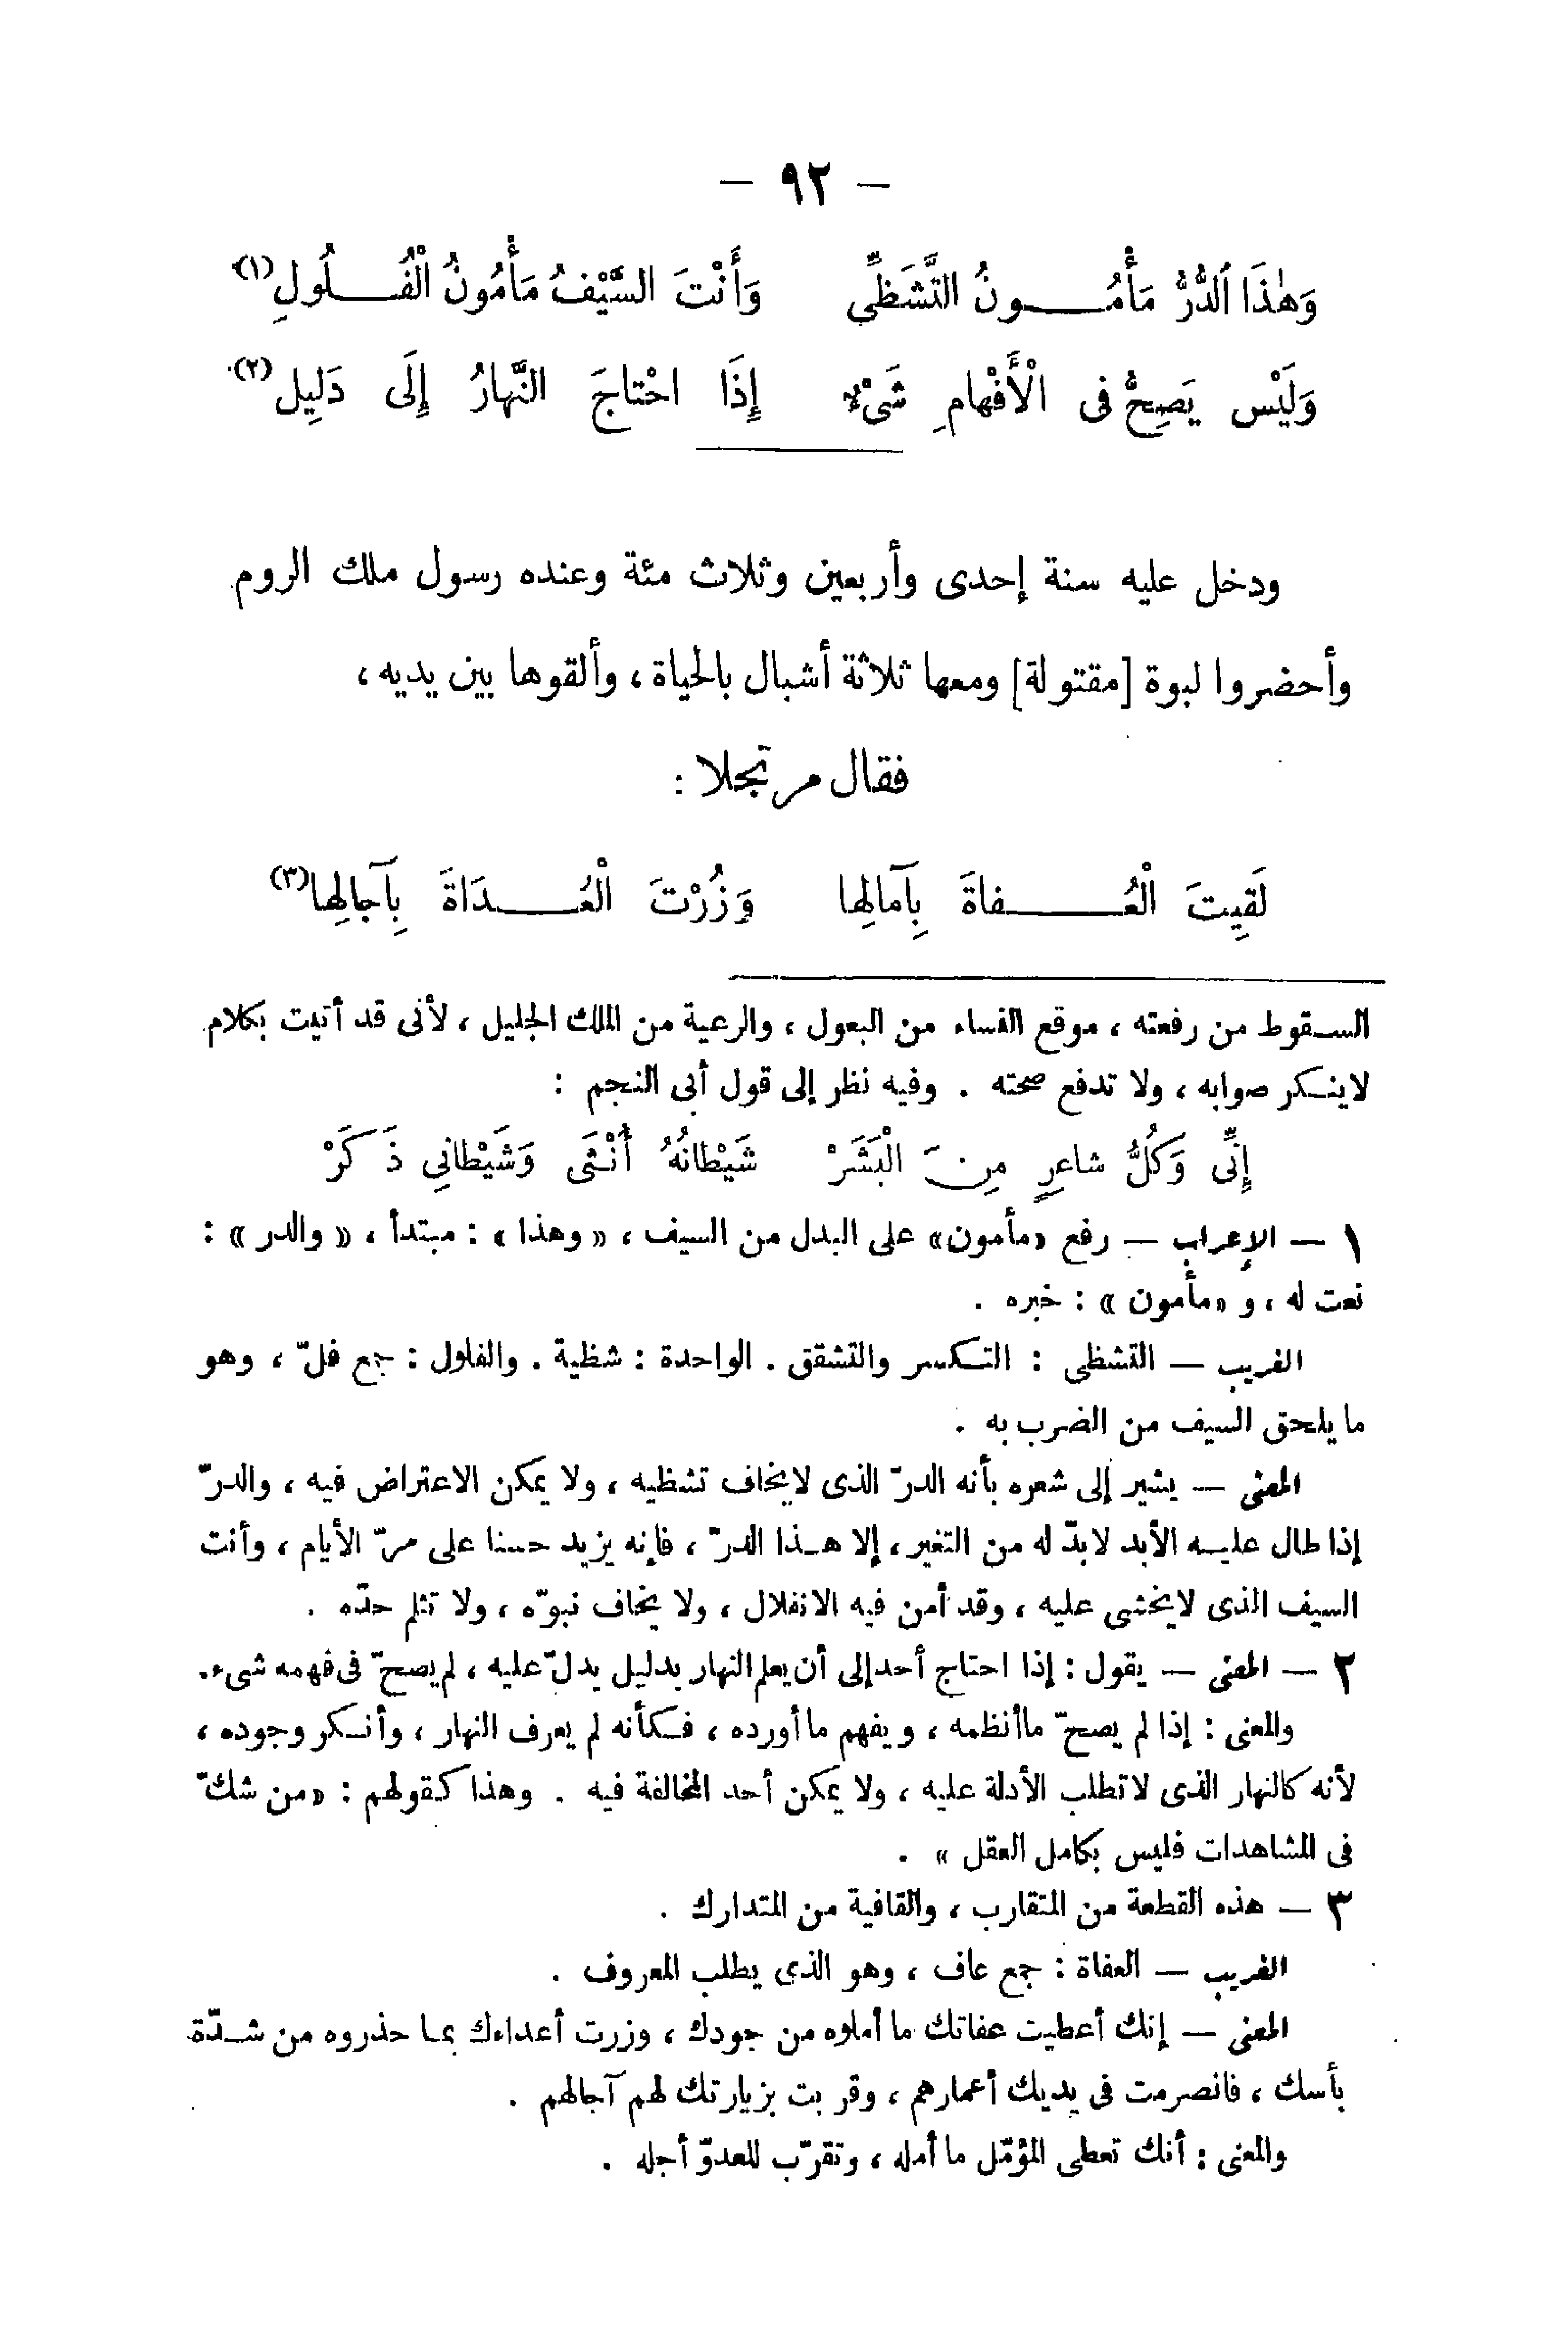 — ٩٢ —
وَهٰذَا ٱلدُّرُّ مَأْمُـــونُ التَّشَظِّى وَأَنْتَ السَّيْفُ مَأْمُونُ الْفُـــلُولِ(١)
وَلَيْس يَصِحُّ فى الْأَفْهامِ شَىْءٌ إِذَا احْتاجَ النَّهارُ إِلَى دَلِيلِ(٢)
ودخل عليه سنة إحدى وأربعين وثلاث مئة وعنده رسول ملك الروم
وأحضروا لبوة [مقتولة] ومعها ثلاثة أشبال بالحياة ، وألقوها بين يديه ،
فقال مرتجلا :
لَقِيتَ الْعُـــفاةَ بِآمالِها وَزُرْتَ الْعُـــدَاةَ بِآجالِها(٣)
السـقوط من رفعته ، موقع النساء من البعول ، والرعية من الملك الجليل ، لأنى قد أتيت بكلام
لاينـكر صوابه ، ولا تدفع صحته . وفيه نظر إلى قول أبى النجم :
إِنِّى وَكُلُّ شاعرٍ مِنَ الْبَشَرْ شَيْطانُهُ أُنْثَى وَشَيْطانِي ذَكَرْ
١ — الإعراب — رفع «مأمون» على البدل من السيف ، «وهذا» : مبتدأ ، «والدر» :
نعت له ، و «مأمون» : خبره .
الغريب — التشظى : التـكسر والتشقق . الواحدة : شظية . والفلول : جمع فلّ ، وهو
ما يلحق السيف من الضرب به .
المعنى — يشير إلى شعره بأنه الدرّ الذى لايخاف تشظيه ، ولا يمكن الاعتراض فيه ، والدرّ
إذا طال عليـه الأبد لابدّ له من التغير ، إلا هـذا الدرّ ، فإنه يزيد حسنا على مرّ الأيام ، وأنت
السيف الذى لايخشى عليه ، وقد أمن فيه الانفلال ، ولا يخاف نبوّه ، ولا تثلم حدّه .
٢ — المعنى — يقول : إذا احتاج أحد إلى أن يعلم النهار بدليل يدلّ عليه ، لم يصحّ فى فهمه شىء.
والمعنى : إذا لم يصحّ ماأنظمه ، ويفهم ما أورده ، فـكأنه لم يعرف النهار ، وأنـكر وجوده ،
لأنه كالنهار الذى لاتطلب الأدلة عليه ، ولا يمكن أحد المخالفة فيه . وهذا كقولهم : «من شكّ
فى المشاهدات فليس بكامل العقل » .
٣ — هذه القطعة من المتقارب ، والقافية من المتدارك .
الغريب — العفاة : جمع عاف ، وهو الذى يطلب المعروف .
المعنى — إنك أعطيت عفاتك ما أملوه من جودك ، وزرت أعداءك بما حذروه من شـدّة
بأسك ، فانصرمت فى يديك أعمارهم ، وقربت بزيارتك لهم آجالهم .
والمعنى : أنك تعطى المؤمّل ما أمله ، وتقرّب للعدوّ أجله .